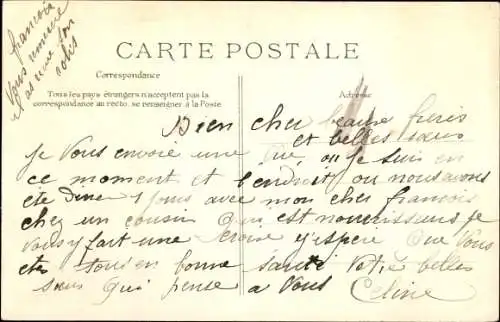 francois
vous remercie
il a reçu son
colis
CARTE POSTALE
Correspondance
Tous les pays étrangers n'acceptent pas la
correspondance au recto. se renseigner à la Poste
Adresse
Bien cher beaux freris
et belles sœurs
Je vous envoie une vue, ou Je suis en
ce moment et l'endroit ou nous avons
ete Dine 1 Jours avec mon cher francois
chez un cousin Qui est nourrisseurs Je
vous y fait une croix J'espere que vous
etes tous en bonne santé votre belles
sœurs qui pense a vous Celine